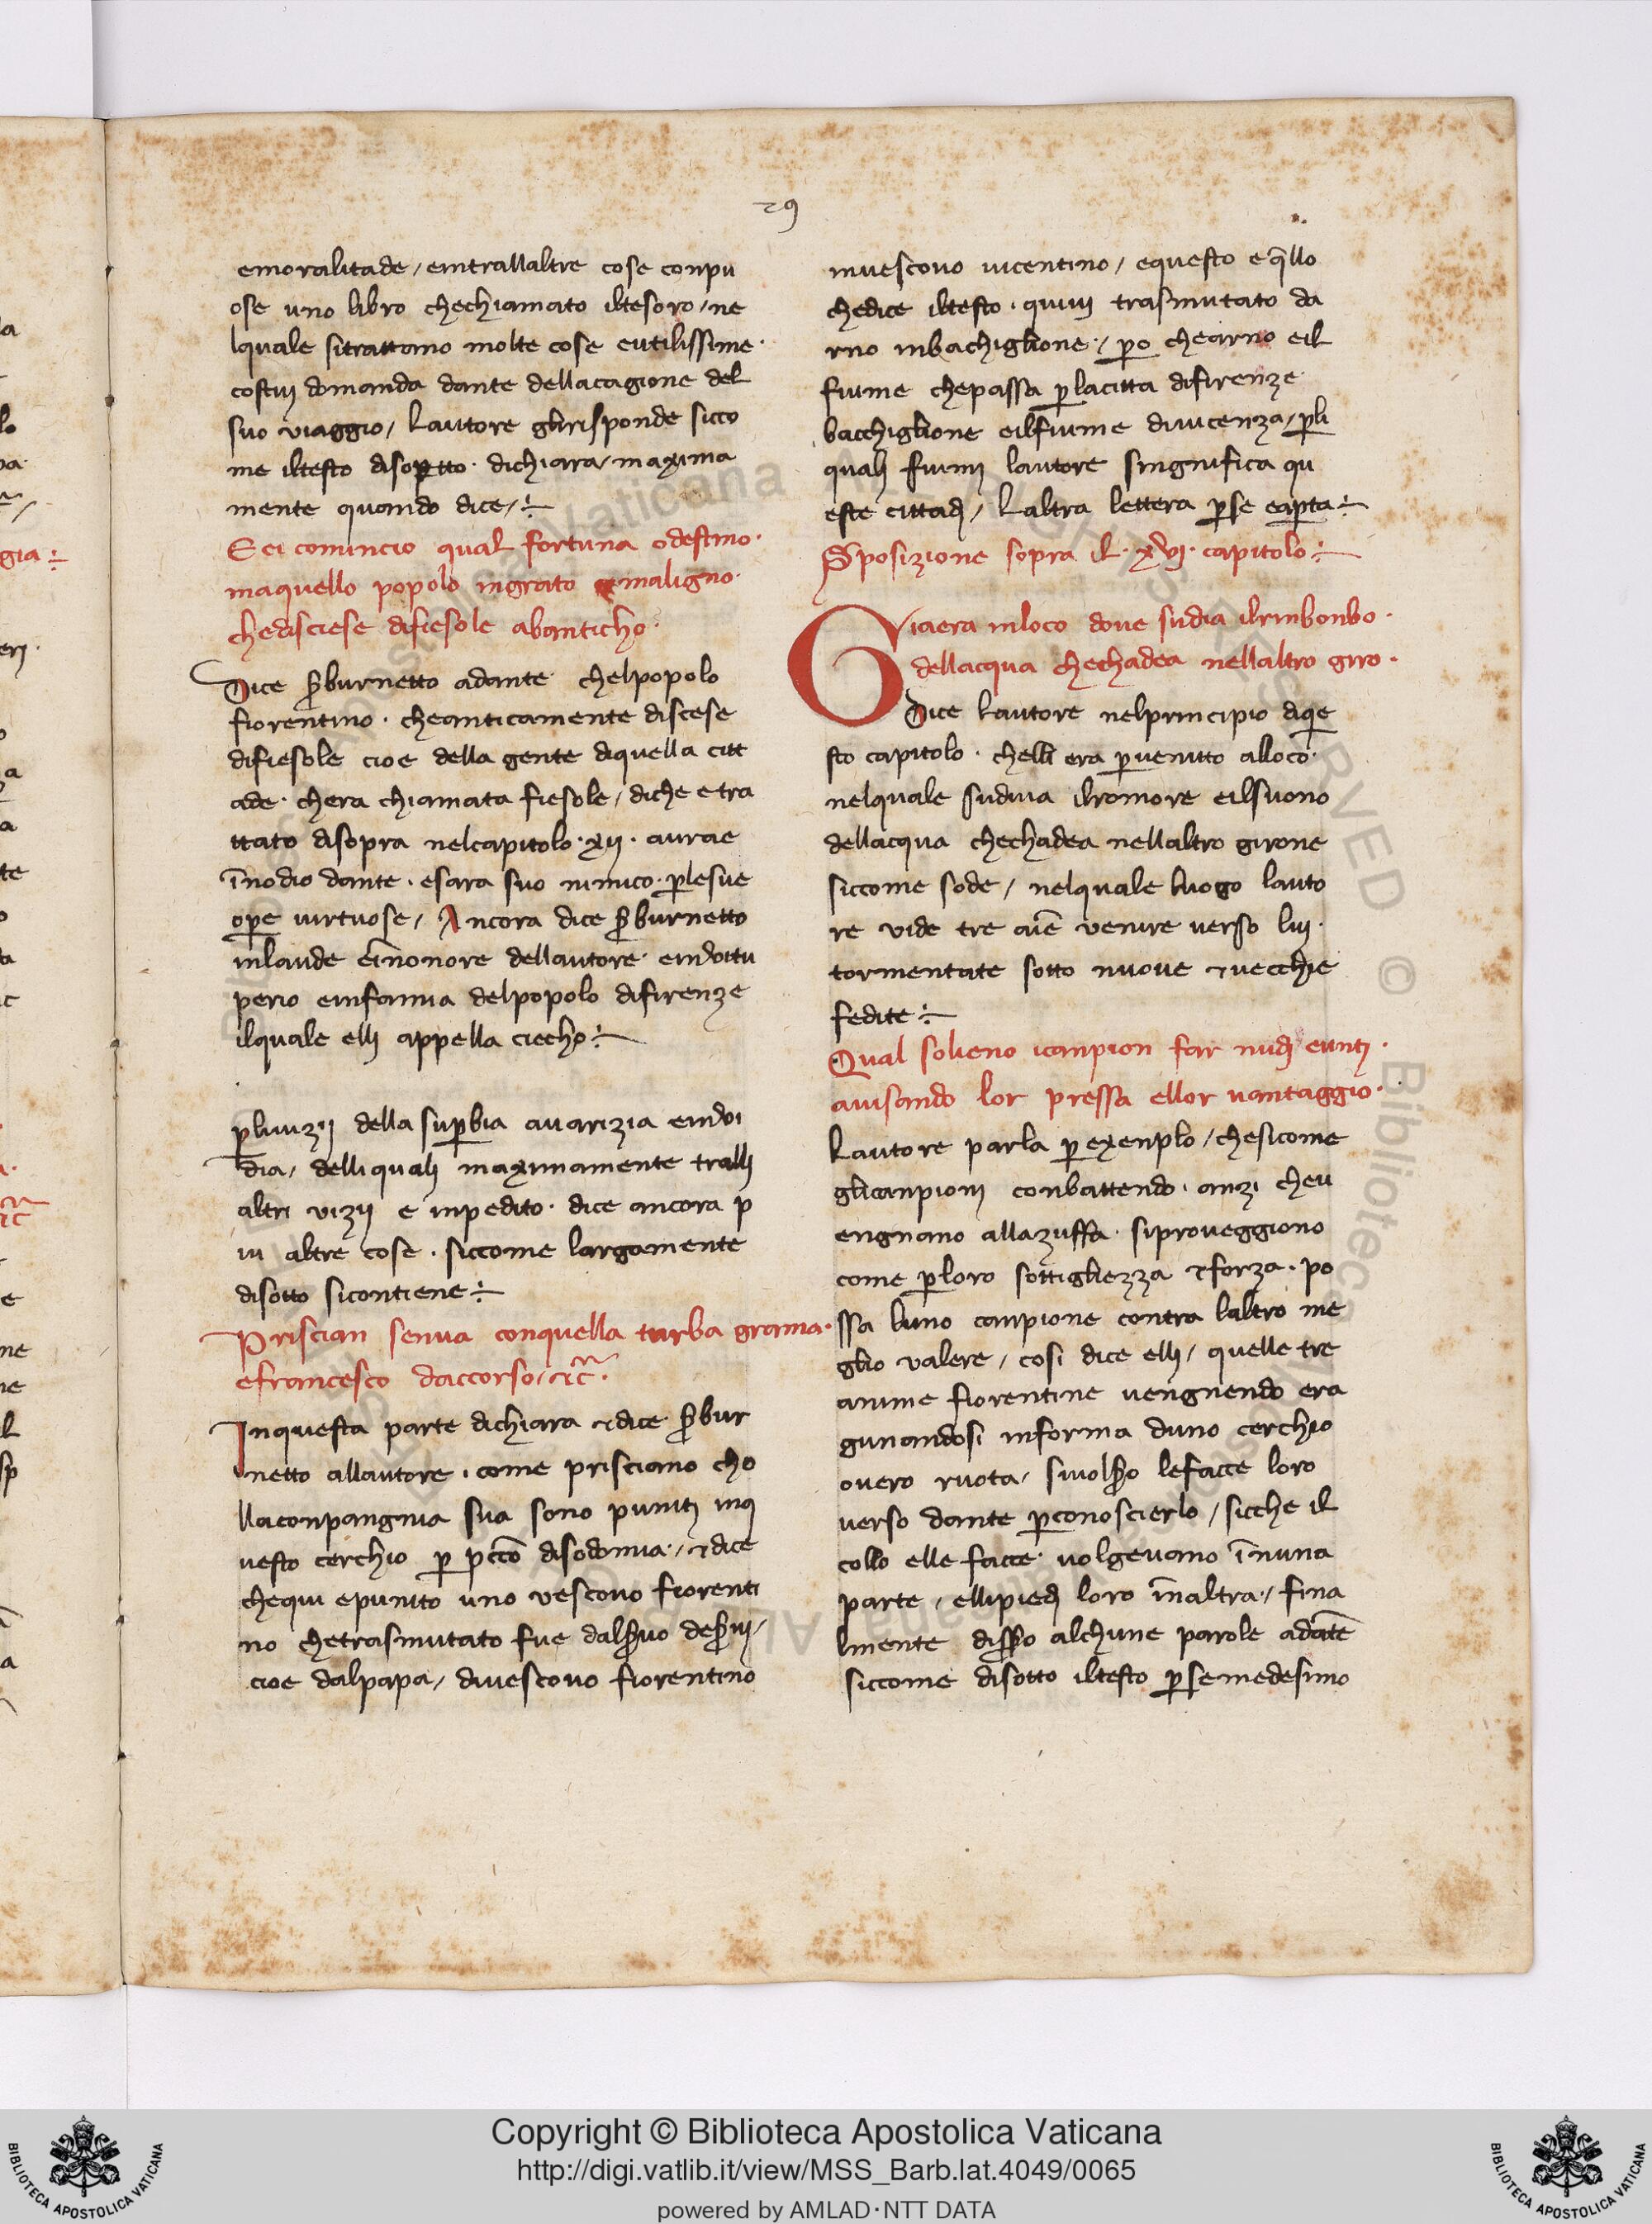 29
emoralitade / emtrallaltre cose conpu
ose uno libro chechiamato iltesoro / ne
lquale sitrattano molte cose eutilissime ·
costuj domanda dante dellacagione del
suo viaggio / Lautore glirisponde sicco
me iltesto disoptto · dichiara / maxima
mente quando dice / ÷
Eei comincio qual fortuna odestino ·
maquello popolo ingrato emaligno ·
chedisciese difiesole abanticho ·
Dice s̄burnetto adante chelpopolo
fiorentino · cheanticamente discese
difiesole cioe della gente diquella citt
ade · chera chiamata fiesole / diche etra
ttato disopra nelcapitolo · xij · aurae
īnodio dante · esara suo nimico · ꝑlesue
oꝑe uirtuose / Ancora dice s̄burnetto
inlaude eīnonore dellautore · envitu
perio einfamia delpopolo difirenze
ilquale ellj appella ciecho ÷
ꝑliuizij della suꝑbia auarizia envi
dia / delliqualj maximamente trallj
altri vizij e inpedito · dice ancora p
iu altre cose · siccome largamente
disotto sicontiene ÷
Priscian senua conquella turba grama ·
efrancesco daccorso / ⁊c̃ ·
Inquesta parte dichiara ⁊dice s̄bur
netto allautore · come prisciano cho
llaconpangnia sua sono punitj inq
uesto cerchio ꝑ pcc̄o disodomia · / ⁊dice
chequi epunito uno vescouo fiorenti
no chetrasmutato fue dals̄uo des̄uj /
cioe dalpapa / diuescouo fiorentino
inuescouo uicentino / equesto e q̄llo
chedice iltesto · quiuj trasmutato da
rno inbachiglione · / ꝑo chearno eil
fiume chepassa ꝑlacitta difirenze
bacchiglione eilfiume diuicenza / ꝑli
qualj fiumj lautore singnifica qu
este cittadj / Laltra lettera ꝑse eaꝑta ÷
Sposizione sopra il · xvj · capitolo ÷
Giaera inloco doue sudia ilrinbonbo ·
dellacqua chechadea nellaltro giro ·
Dice Lautore nelprincipio diq̄e
sto capitolo · chelli era ꝑuenuto alloco ·
nelquale sudiua ilromore eilsuono
dellacqua chechadea nellaltro girone
siccome sode / nelquale luogo lauto
re vide tre aīe venire uerso luj ·
tormentate sotto nuoue ⁊uecchie
fedite ÷
Qual solieno icanpion far nudj euntj ·
auisando lor pressa ellor uantaggio ·
Lautore parla ꝑ exenplo / chesicome
glicanpionj conbattendo · anzi cheu
engnano allazuffa · siproueggiono
come ꝑloro sottigliezza ⁊forza · po
ssa luno canpione contra laltro me
glio valere / cosi dice elli / quelle tre
anime fiorentine uengnendo era
gunandosi informa duno cerchio
ouero ruota / siuols̄o lefacce loro
verso dante ꝑconoscierlo / sicche il
collo elle facce · uolgeuano īnuna
parte / ellipiedj loro īnaltra · / fina
lmente diss̄o alchune parole adāte
siccome disotto iltesto ꝑsemedesimo
Copyright © Biblioteca Apostolica Vaticana
http://digi.vatlib.it/view/MSS_Barb.lat.4049/0065
powered by AMLAD·NTT DATA
BIBLIOTECA APOSTOLICA VATICANA
BIBLIOTECA APOSTOLICA VATICANA